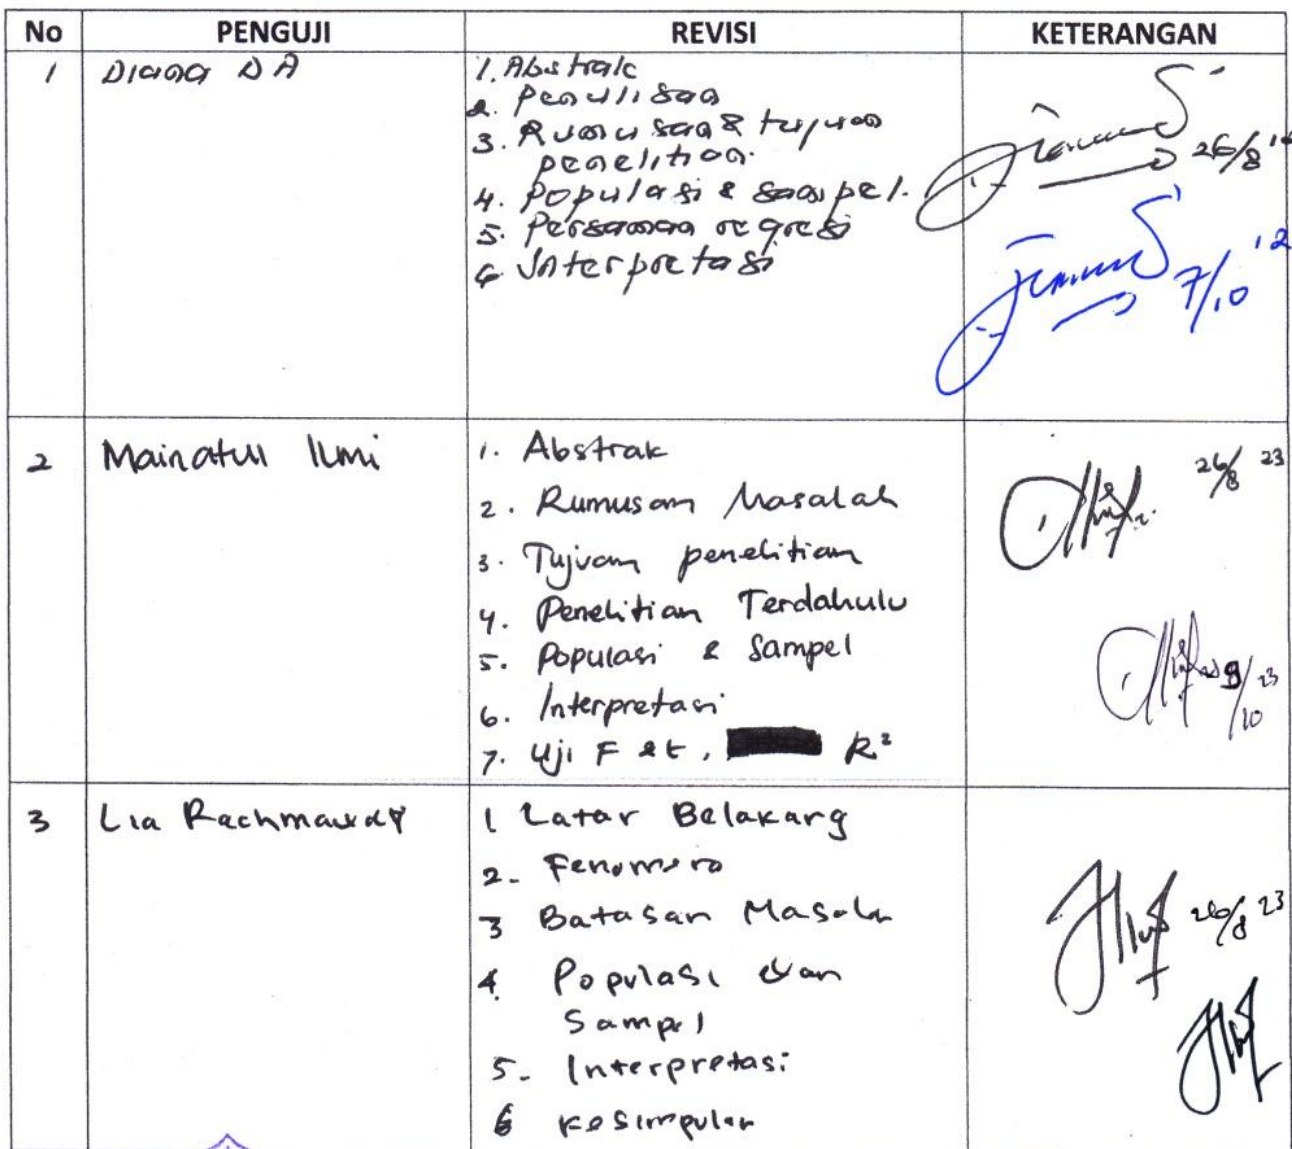 No PENGUJI REVISI KETERANGAN
1 Diana DA
1. Abstrak
2. Penulisan
3. Rumusan & tujuan
penelitian.
4. Populasi & sampel.
5. Persamaan regresi
6 Interpretasi
26/8
7/10
2 Mainatul Ilmi
1. Abstrak
2. Rumusan Masalah
3. Tujuan penelitian
4. Penelitian Terdahulu
5. Populasi & Sampel
6. Interpretasi
7. Uji F & t, R²
26/8 23
9/10 23
3 Lia Rachmawaty
1 Latar Belakang
2. Fenomena
3 Batasan Masalah
4 Populasi dan
Sampel
5. Interpretasi
6 Kesimpulan
26/8 23